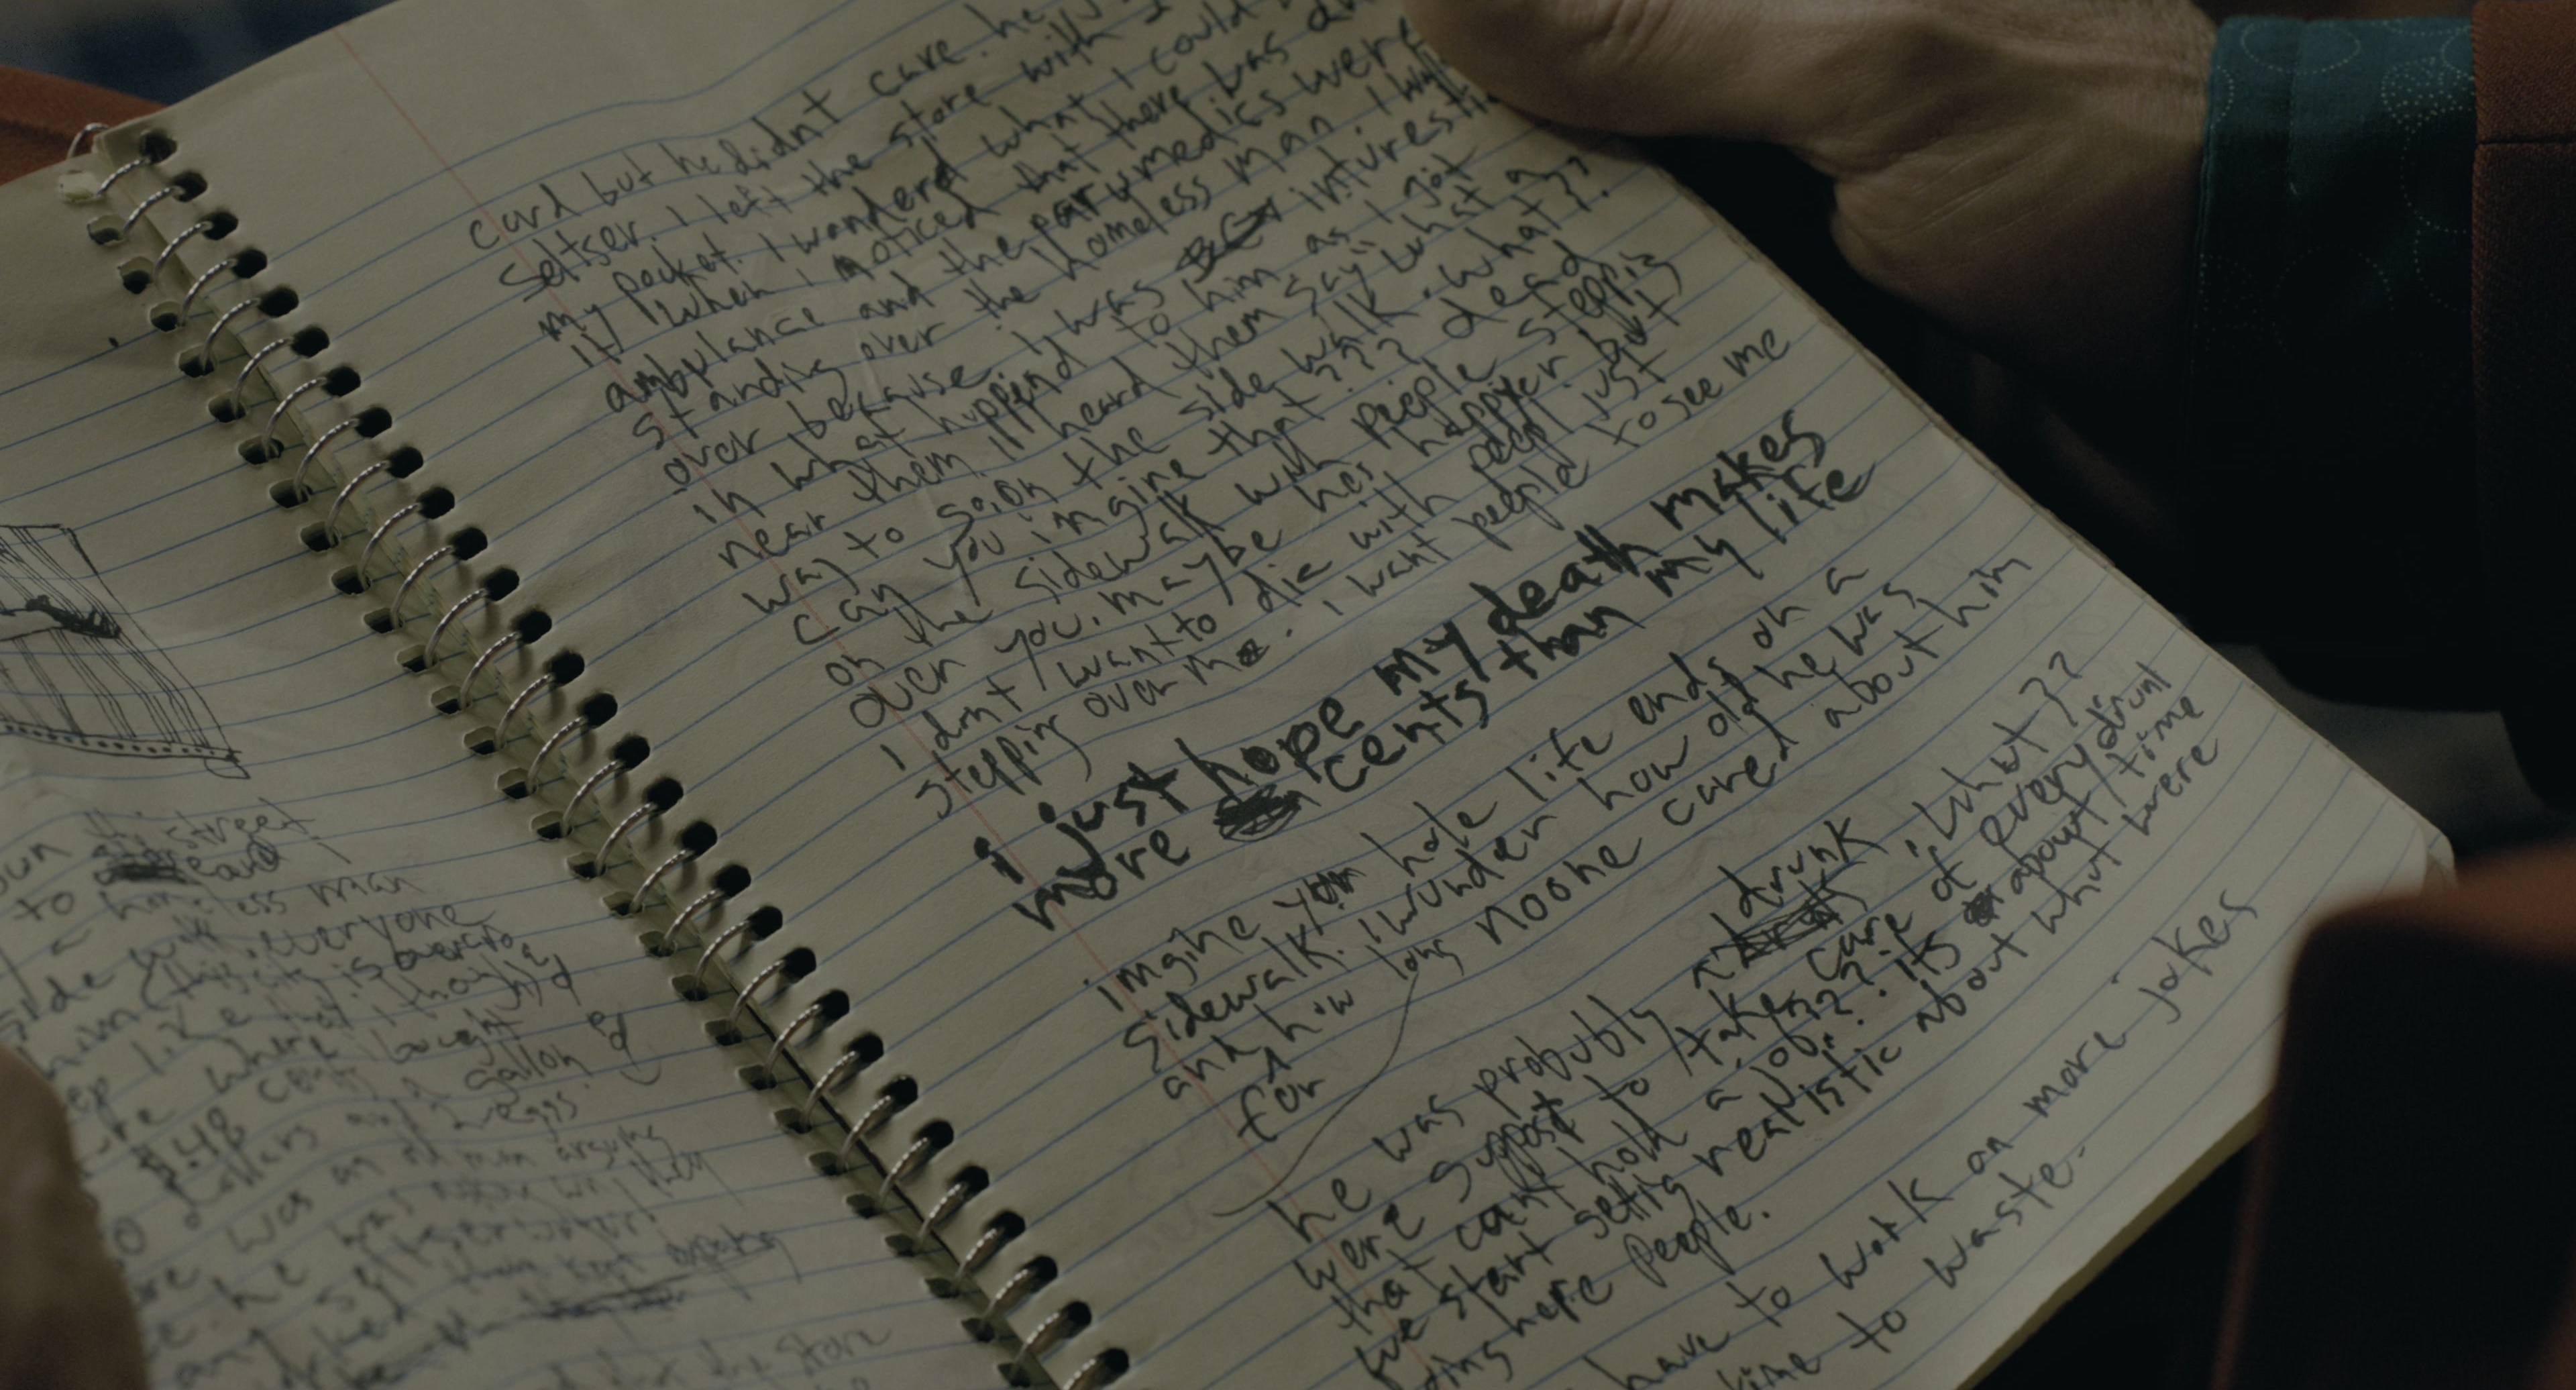 un the street
to card
a homeless man
side walk, everyone
him (this city is overcro
ep like that i thought
re where i bought
$.48 cents a gallon
dollars and 2 eggs.
was an old man arguing
he was
seltser
kept
the store
card but he didnt care. he
seltser. i left the store with
my pocket. i wanderd what i could
it when i noticed that there was an
ambulance and the parumedics were
standing over the homeless man i
over because i was inturesti
in what happend to him as i got
near them. i heard them say what a
way to go. on the side walk. what??
can you imgine that??? dead
on the sidewalk with people steppig
over you. maybe hes happyer but
i dont want to die with peopl just
stepping over me. i want people to see me
i just hope my death makes
more cents than my life
imgine your hole life ends on a
sidewalk. i wunder how old he was
and how long noone cared about him
for
he was probubly a drunk. what??
were suppost to take care of every drunt
that cant hold a job??? its about time
we start settig realistic about whut were
ding here people.
have to work on more jokes
time to waste-